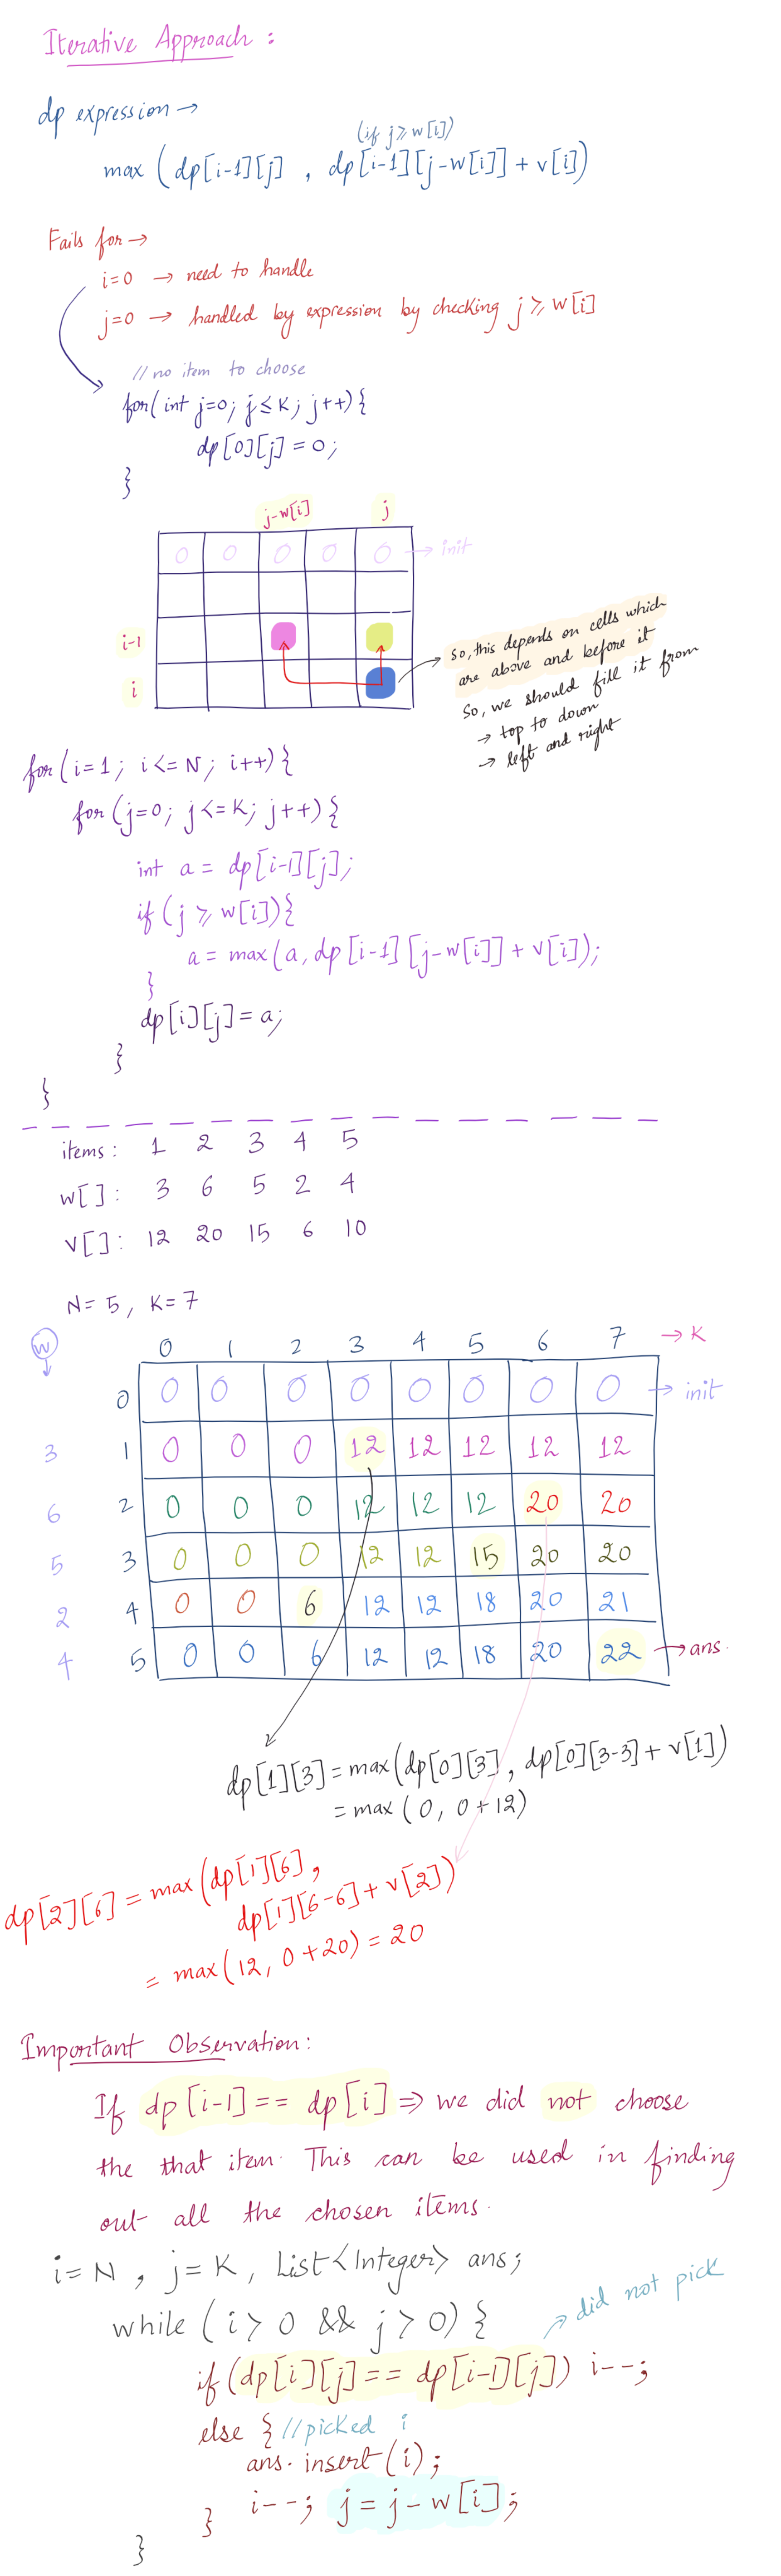 Iterative Approach :
dp expression →
(if j ≥ w[i])
max ( dp[i-1][j] , dp[i-1][j-w[i]] + v[i])
Fails for →
i=0 → need to handle
j=0 → handled by expression by checking j ≥ w[i]
// no item to choose
for( int j=0; j ≤ K; j++){
dp[0][j] = 0;
}
j-w[i] j
0 0 0 0 0 → init
i-1
i
So, this depends on cells which
are above and before it
So, we should fill it from
→ top to down
→ left and right
for (i=1; i<=N; i++){
for (j=0; j<=K; j++){
int a = dp[i-1][j];
if (j ≥ w[i]){
a = max(a, dp[i-1][j-w[i]] + v[i]);
}
dp[i][j] = a;
}
}
items : 1 2 3 4 5
w[] : 3 6 5 2 4
v[] : 12 20 15 6 10
N= 5, K= 7
w 0 1 2 3 4 5 6 7 → K
0 0 0 0 0 0 0 0 0 → init
3 1 0 0 0 12 12 12 12 12
6 2 0 0 0 12 12 12 20 20
5 3 0 0 0 12 12 15 20 20
2 4 0 0 6 12 12 18 20 21
4 5 0 0 6 12 12 18 20 22 → ans.
dp[1][3] = max(dp[0][3], dp[0][3-3] + v[1])
= max (0, 0+12)
dp[2][6] = max(dp[1][6],
dp[1][6-6] + v[2])
= max(12, 0+20) = 20
Important Observation:
If dp[i-1] == dp[i] ⇒ we did not choose
the that item. This can be used in finding
out all the chosen items.
i= N , j= K , List<Integer> ans;
while ( i > 0 && j > 0) {
→ did not pick
if (dp[i][j] == dp[i-1][j]) i--;
else { //picked i
ans. insert (i);
i--; j = j - w[i];
}
}